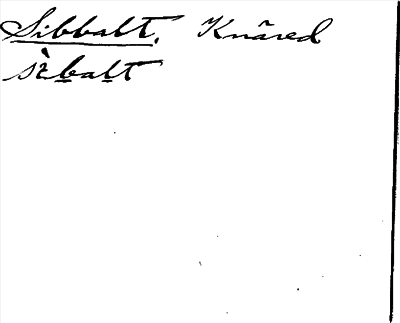 Sibbalt, Knäred
sìbalt